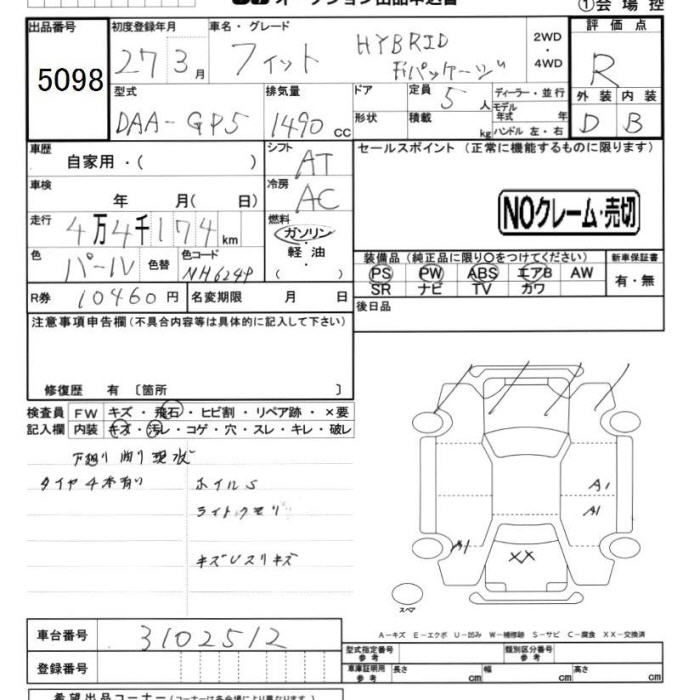 オークション出品申込書
①会場控
出品番号 初度登録年月 車名・グレード 評価点
5098 27 3月 フィット HYBRID 2WD・4WD R
型式 排気量 ドア 定員 5人 ディーラー・並行
外装 内装
DAA-GP5 1490cc 形状 積載 kg モデル年式 年 ハンドル 左・右 D B
車歴 自家用・( ) シフト AT セールスポイント (正常に機能するものに限ります)
車検 年 月( 日) 冷房 AC
NOクレーム・売切
走行 4万4千174km 燃料 ガソリン・軽油・( )
色 パール 色替 色コード NH624P
装備品 (純正品に限り○をつけてください) 新車保証書
PS PW ABS エアB AW 有・無
SR ナビ TV カワ
R券 10460円 名変期限 月 日
後日品
注意事項申告欄 (不具合内容等は具体的に記入して下さい)
修復歴 有 〔箇所 〕
検査員 FW キズ・飛石・ヒビ割・リペア跡・×要
記入欄 内装 キズ・汚レ・コゲ・穴・スレ・キレ・破レ
タイヤ4本有り ホイルS
ライトクモリ
キズUスリキズ
A1
A1
A1
XX
スペア
A-キズ E-エクボ U-凹み W-補修跡 S-サビ C-腐食 XX-交換済
車台番号 3102512
型式指定番号 参考 類別区分番号 参考
登録番号 車庫証明用 参考 長さ cm 幅 cm 高さ cm
希望出品コーナー (コーナーは各会場により異なります)